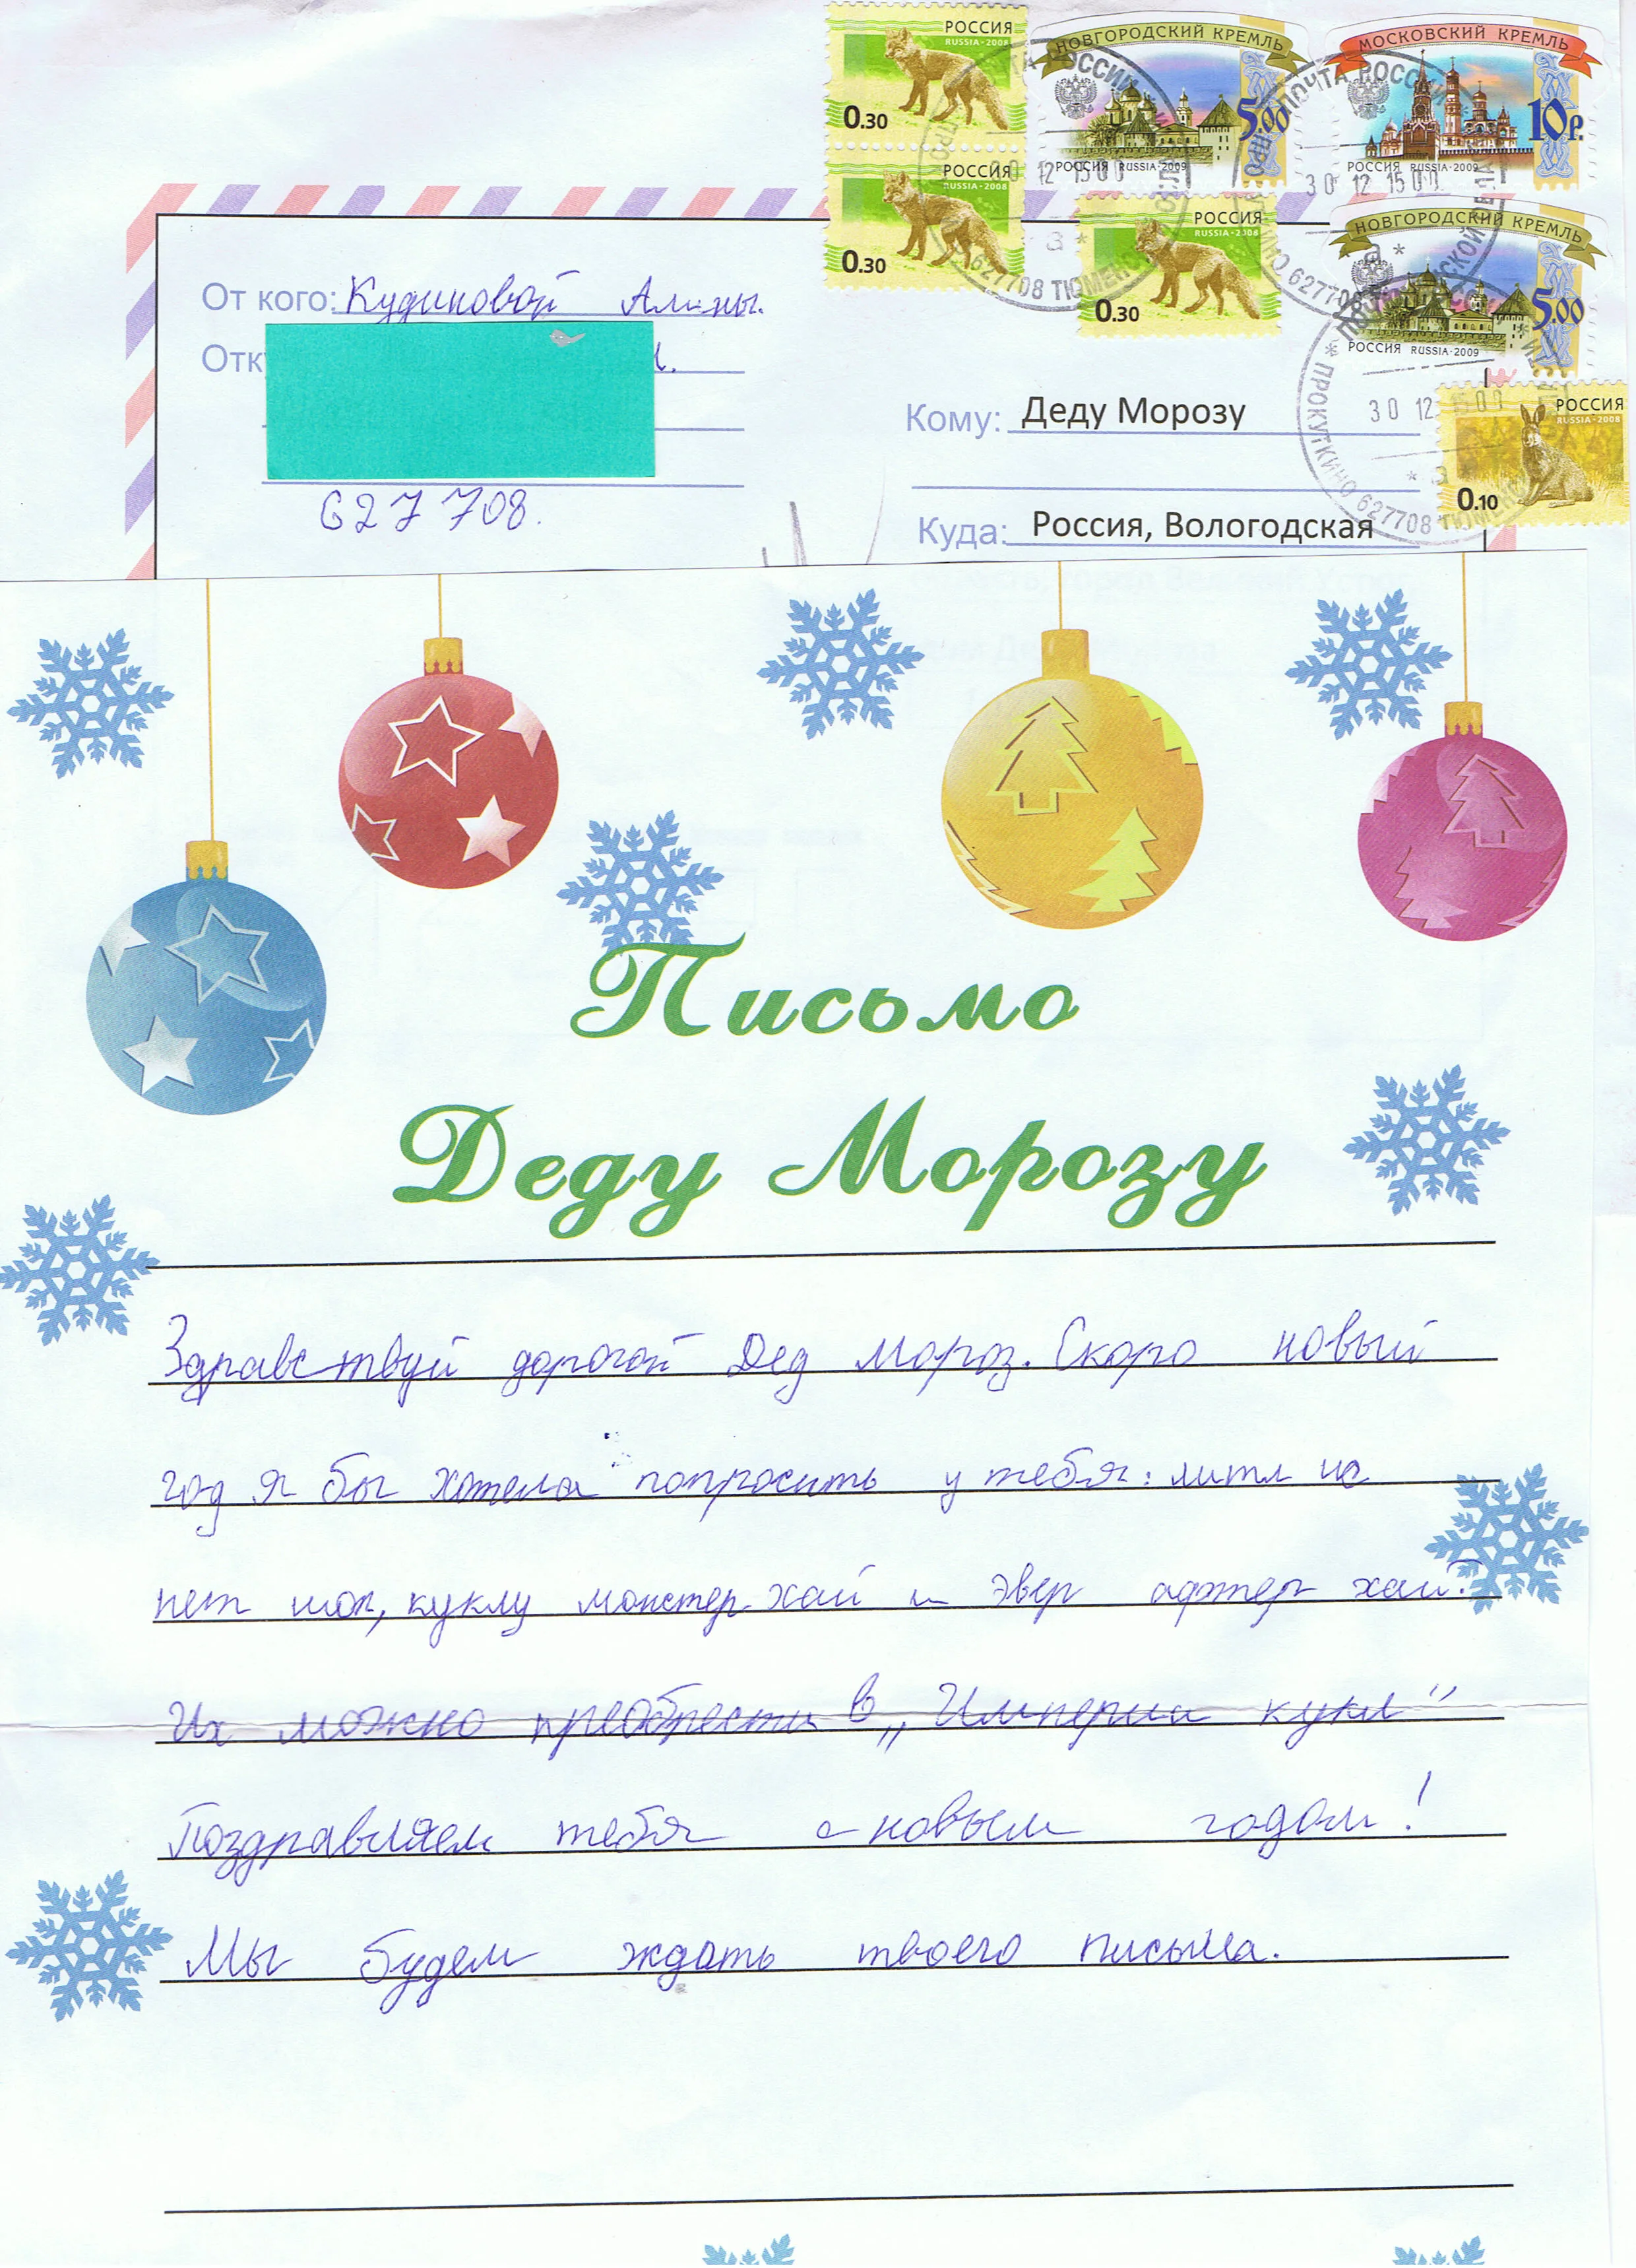 РОССИЯ
RUSSIA·2008
0.30
НОВГОРОДСКИЙ КРЕМЛЬ
5.00
РОССИЯ RUSSIA·2009
МОСКОВСКИЙ КРЕМЛЬ
10р.
РОССИЯ RUSSIA·2009
РОССИЯ
RUSSIA·2008
0.30
РОССИЯ
RUSSIA·2008
0.30
НОВГОРОДСКИЙ КРЕМЛЬ
5.00
РОССИЯ RUSSIA·2009
РОССИЯ
RUSSIA·2008
0.10
ПОЧТА РОССИИ
30 12 15 00
627708 ТЮМЕНСКОЙ
ПРОКУТКИНО 627708
30 12
От кого: Кудиновой Алины.
627708.
Кому: Деду Морозу
Куда: Россия, Вологодская
Письмо
Деду Морозу
Здравствуй дорогой Дед Мороз. Скоро новый
год я бы хотела попросить у тебя: литл па
пет шоп, куклу монстер хай и эвер афтер хай.
Их можно преобрести в „Империи кукл“
Поздравляем тебя с новым годом!
Мы будем ждать твоего письма.